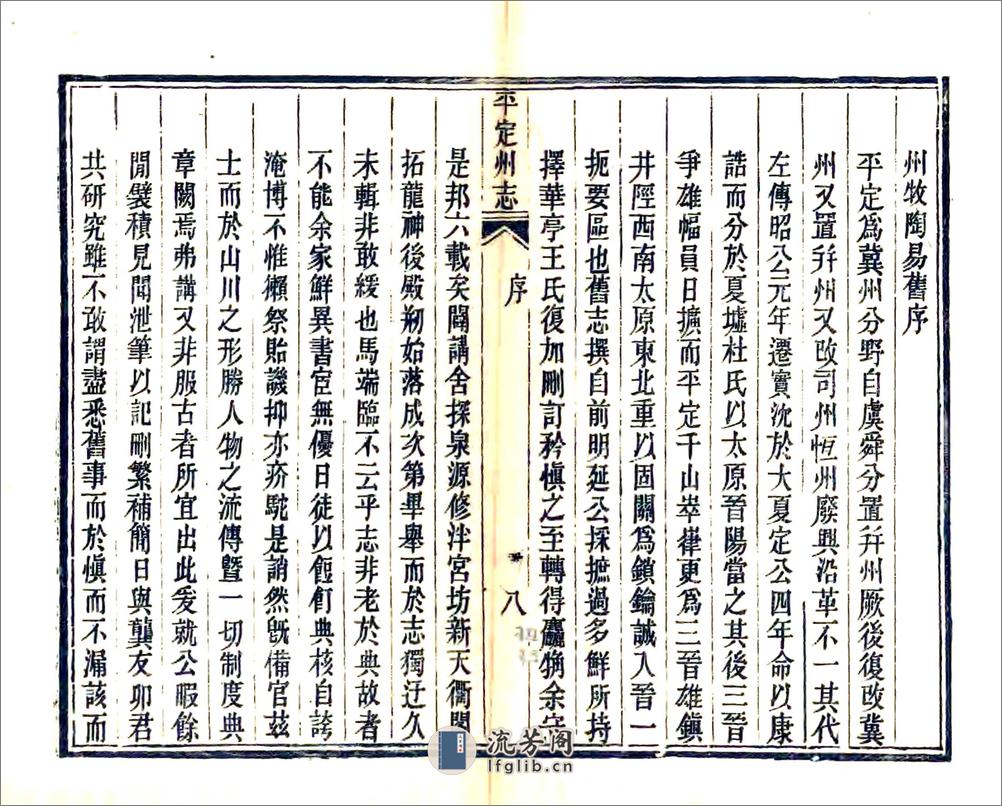 州牧陶易舊序
平定爲冀州分野自虞舜分置幷州厥後復改冀
州又置幷州又改司州恆州廢興沿革不一其代
左傳昭公元年遷實沈於大夏定公四年命以康
誥而分於夏墟杜氏以太原晉陽當之其後三晉
爭雄幅員日擴而平定千山崒嵂更爲三晉雄鎭
井陘西南太原東北重以固關爲鎖鑰誠入晉一
扼要區也舊志撰自前明延公採摭過多鮮所持
擇華亭王氏復加刪訂矜愼之至轉得麤觕余守
平定州志
序
八
是邦六載矣闢講舍探泉源修泮宮坊新天衢閣
拓龍神後殿剏始落成次第畢舉而於志獨迂久
未輯非敢緩也馬端臨不云乎志非老於典故者
不能余家鮮異書宦無優日徒以飣餖典核自誇
淹博不惟獺祭貽譏抑亦夯駝是誚然旣備官茲
士而於山川之形勝人物之流傳曁一切制度典
章闕焉弗講又非服古者所宜出此爰就公暇餘
閒襞積見聞泄筆以記刪繁補簡日與龔友卯君
共硏究雖不敢謂盡悉舊事而於愼而不漏該而
流芳閣
lfglib.cn